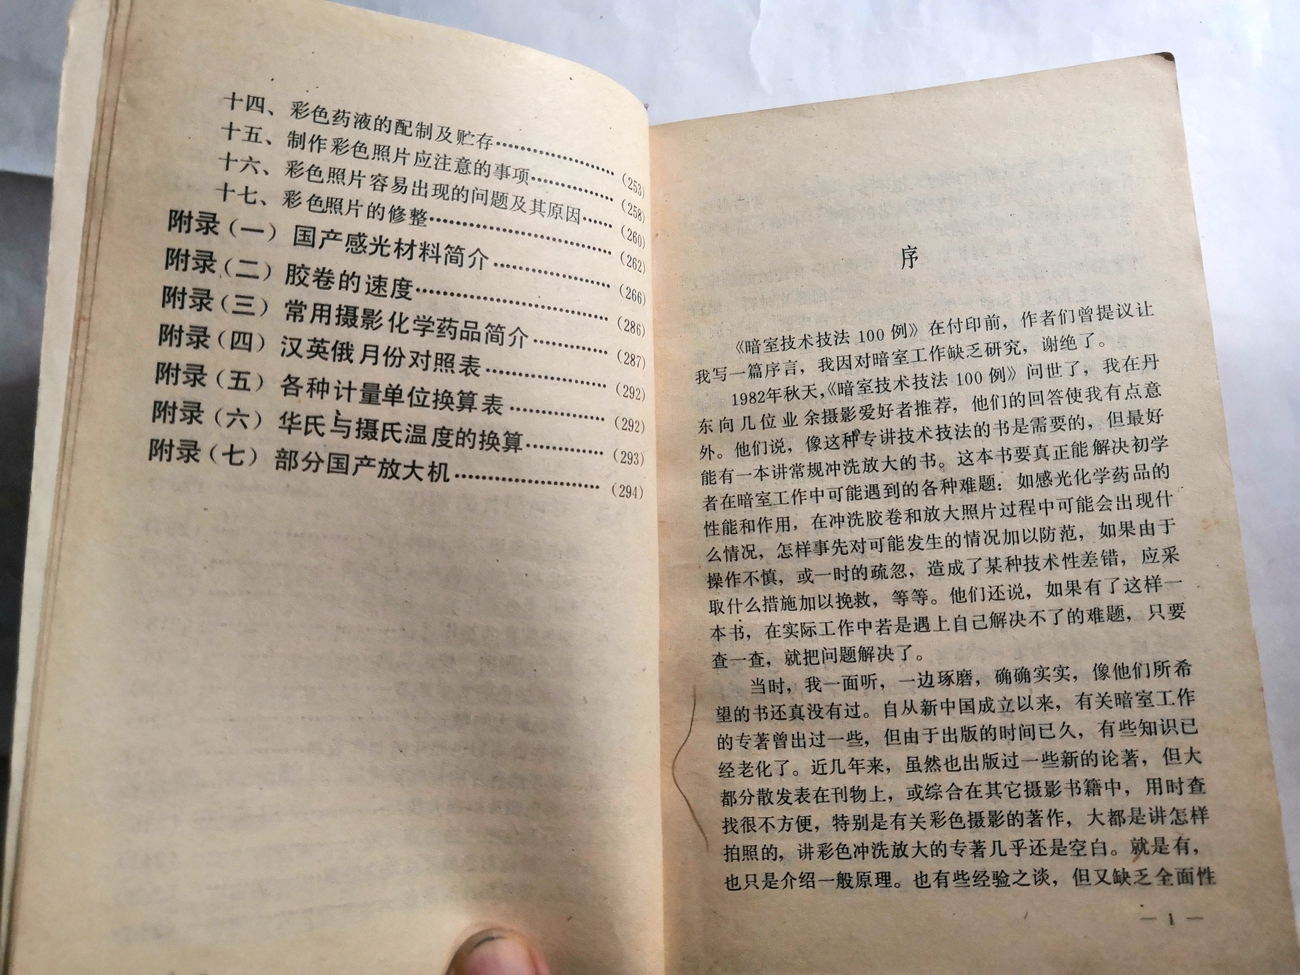 十四、彩色药液的配制及贮存……………(253)
十五、制作彩色照片应注意的事项…………(258)
十六、彩色照片容易出现的问题及其原因……(260)
十七、彩色照片的修整……………………(262)
附录(一)国产感光材料简介………………(266)
附录(二)胶卷的速度………………………(286)
附录(三)常用摄影化学药品简介…………(287)
附录(四)汉英俄月份对照表………………(292)
附录(五)各种计量单位换算表……………(292)
附录(六)华氏与摄氏温度的换算…………(293)
附录(七)部分国产放大机…………………(294)
序
《暗室技术技法100例》在付印前，作者们曾提议让
我写一篇序言，我因对暗室工作缺乏研究，谢绝了。
1982年秋天，《暗室技术技法100例》问世了，我在丹
东向几位业余摄影爱好者推荐，他们的回答使我有点意
外。他们说，像这种专讲技术技法的书是需要的，但最好
能有一本讲常规冲洗放大的书。这本书要真正能解决初学
者在暗室工作中可能遇到的各种难题：如感光化学药品的
性能和作用，在冲洗胶卷和放大照片过程中可能会出现什
么情况，怎样事先对可能发生的情况加以防范，如果由于
操作不慎，或一时的疏忽，造成了某种技术性差错，应采
取什么措施加以挽救，等等。他们还说，如果有了这样一
本书，在实际工作中若是遇上自己解决不了的难题，只要
查一查，就把问题解决了。
当时，我一面听，一边琢磨，确确实实，像他们所希
望的书还真没有过。自从新中国成立以来，有关暗室工作
的专著曾出过一些，但由于出版的时间已久，有些知识已
经老化了。近几年来，虽然也出版过一些新的论著，但大
都分散发表在刊物上，或综合在其它摄影书籍中，用时查
找很不方便，特别是有关彩色摄影的著作，大都是讲怎样
拍照的，讲彩色冲洗放大的专著几乎还是空白。就是有，
也只是介绍一般原理。也有些经验之谈，但又缺乏全面性
— 1 —